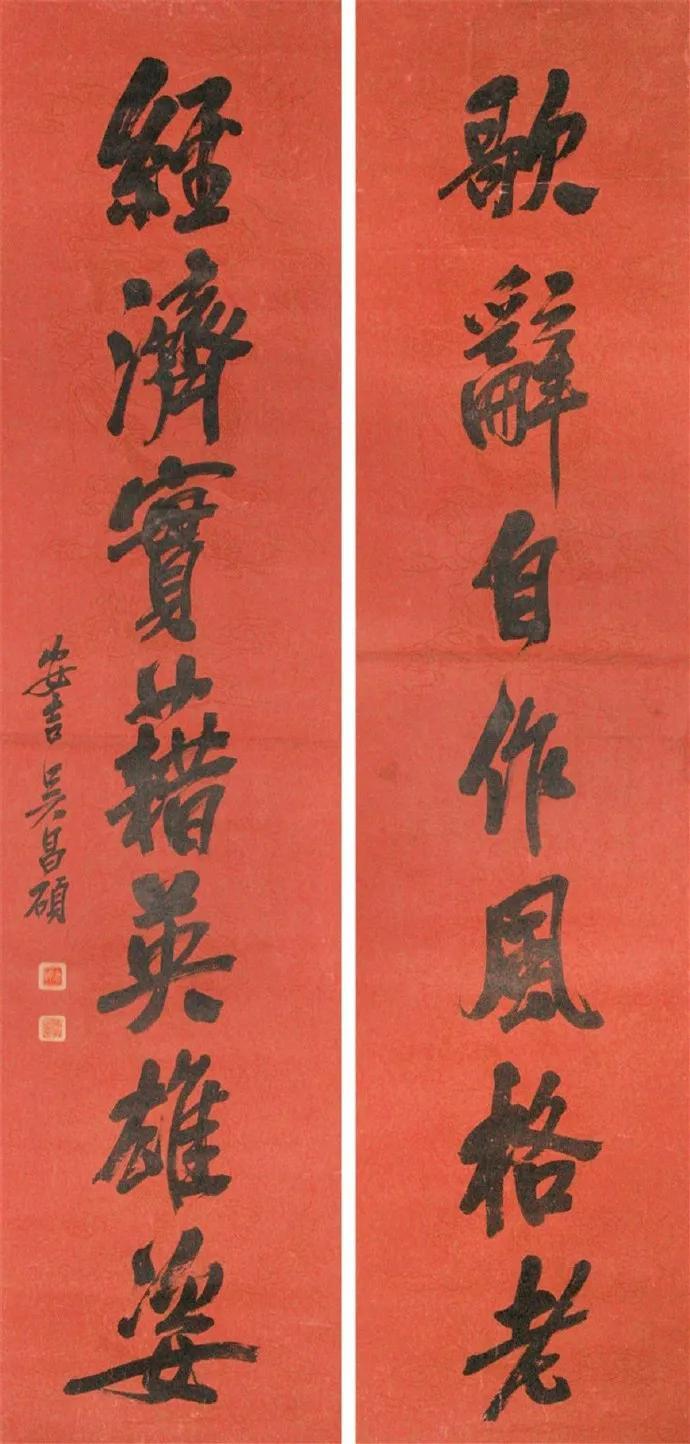 歌辭自作風格老
經濟實藉英雄姿
安吉吳昌碩